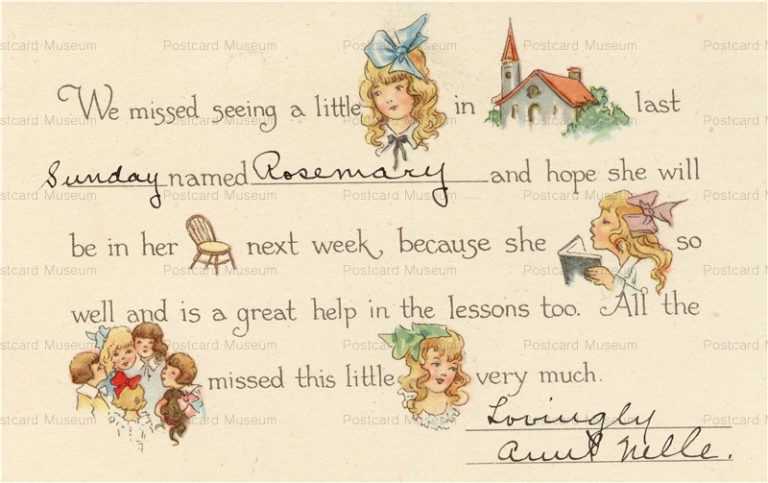 We missed seeing a little in last
Sunday named Rosemary and hope she will
be in her next week, because she so
well and is a great help in the lessons too. All the
missed this little very much.
Lovingly
Aunt Nelle.
Postcard Museum